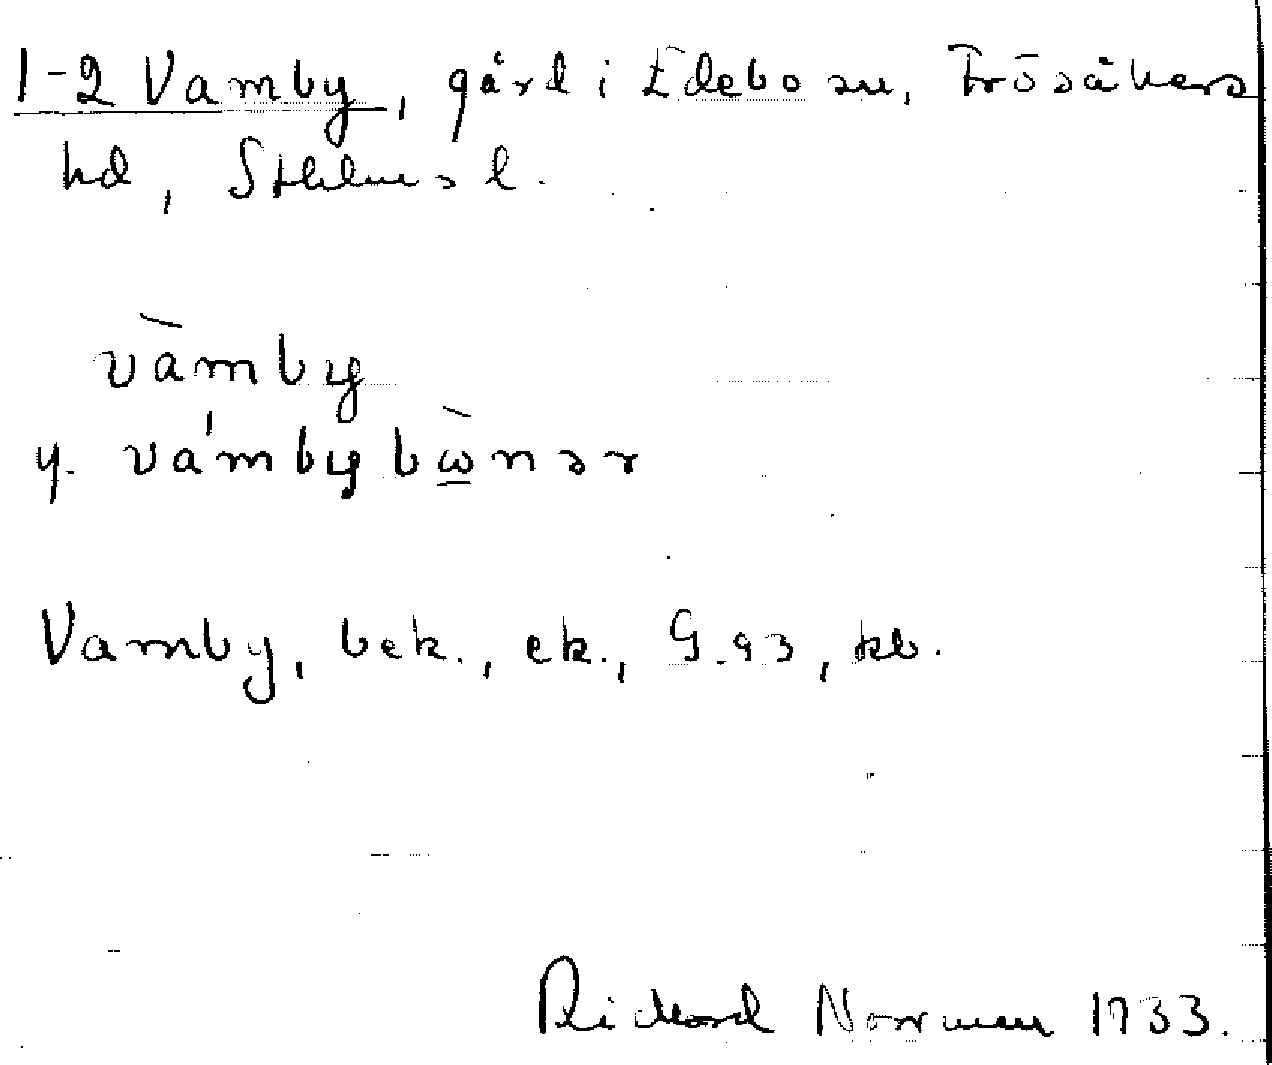 1-2 Vamby, gård i Edebo sn, Frösåkers
hd, Sthlms l.
vàmby
y. vámbybὼ̲nər
Vamby, bek., ek., G.93, kb.
Rickard Norrman 1933.